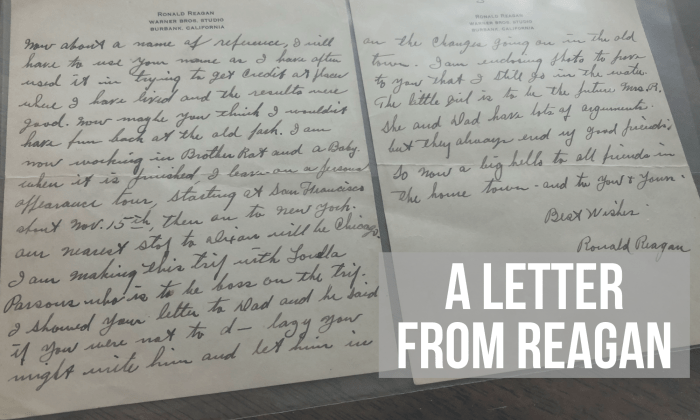 RONALD REAGAN
WARNER BROS. STUDIO
BURBANK, CALIFORNIA
Now about a name of reference, I will
have to use your name as I have often
used it in trying to get credit at places
where I have lived and the results were
good. Now maybe you think I wouldn't
have fun back at the old park. I am
now working in Brother Rat and a Baby.
when it is finished I leave on a personal
appearance tour, starting at San Francisco
about Nov. 15th, then on to New York.
our nearest stop to Dixon will be Chicago.
I am making this trip with Louella
Parsons who is to be boss on the trip.
I showed your letter to Dad and he said
if you were not to d— lazy you
might write him and let him in
RONALD REAGAN
WARNER BROS. STUDIO
BURBANK, CALIFORNIA
on the changes going on in the old
town. I am enclosing photo to prove
to you that I still go in the water.
The little girl is to be the future Mrs. R.
She and Dad have lots of arguments
but they always end up good friends.
So now a big hello to all friends in
the home town - and to you & yours.
Best Wishes
Ronald Reagan
A LETTER
FROM REAGAN